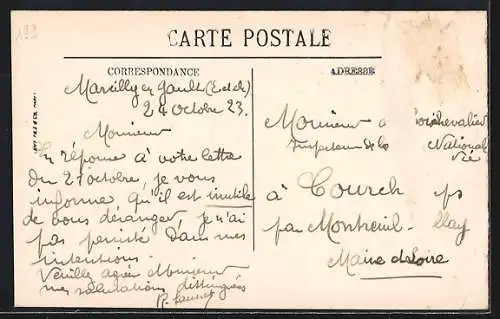 123
CARTE POSTALE
CORRESPONDANCE
ADRESSE
Marcilly en Gault (L et ch)
24 octobre 23.
Monsieur
En réponse à votre lettre
du 21 octobre, je vous
informe qu'il est inutile
de vous déranger, je n'ai
pas persisté dans mes
intentions.
Veuillez agréer Monsieur
mes salutations distinguées
Monsieur
chevalier
Inspecteur de la
Nationale
Vie
à Courch ps
par Montreuil. Bellay
Maine & Loire